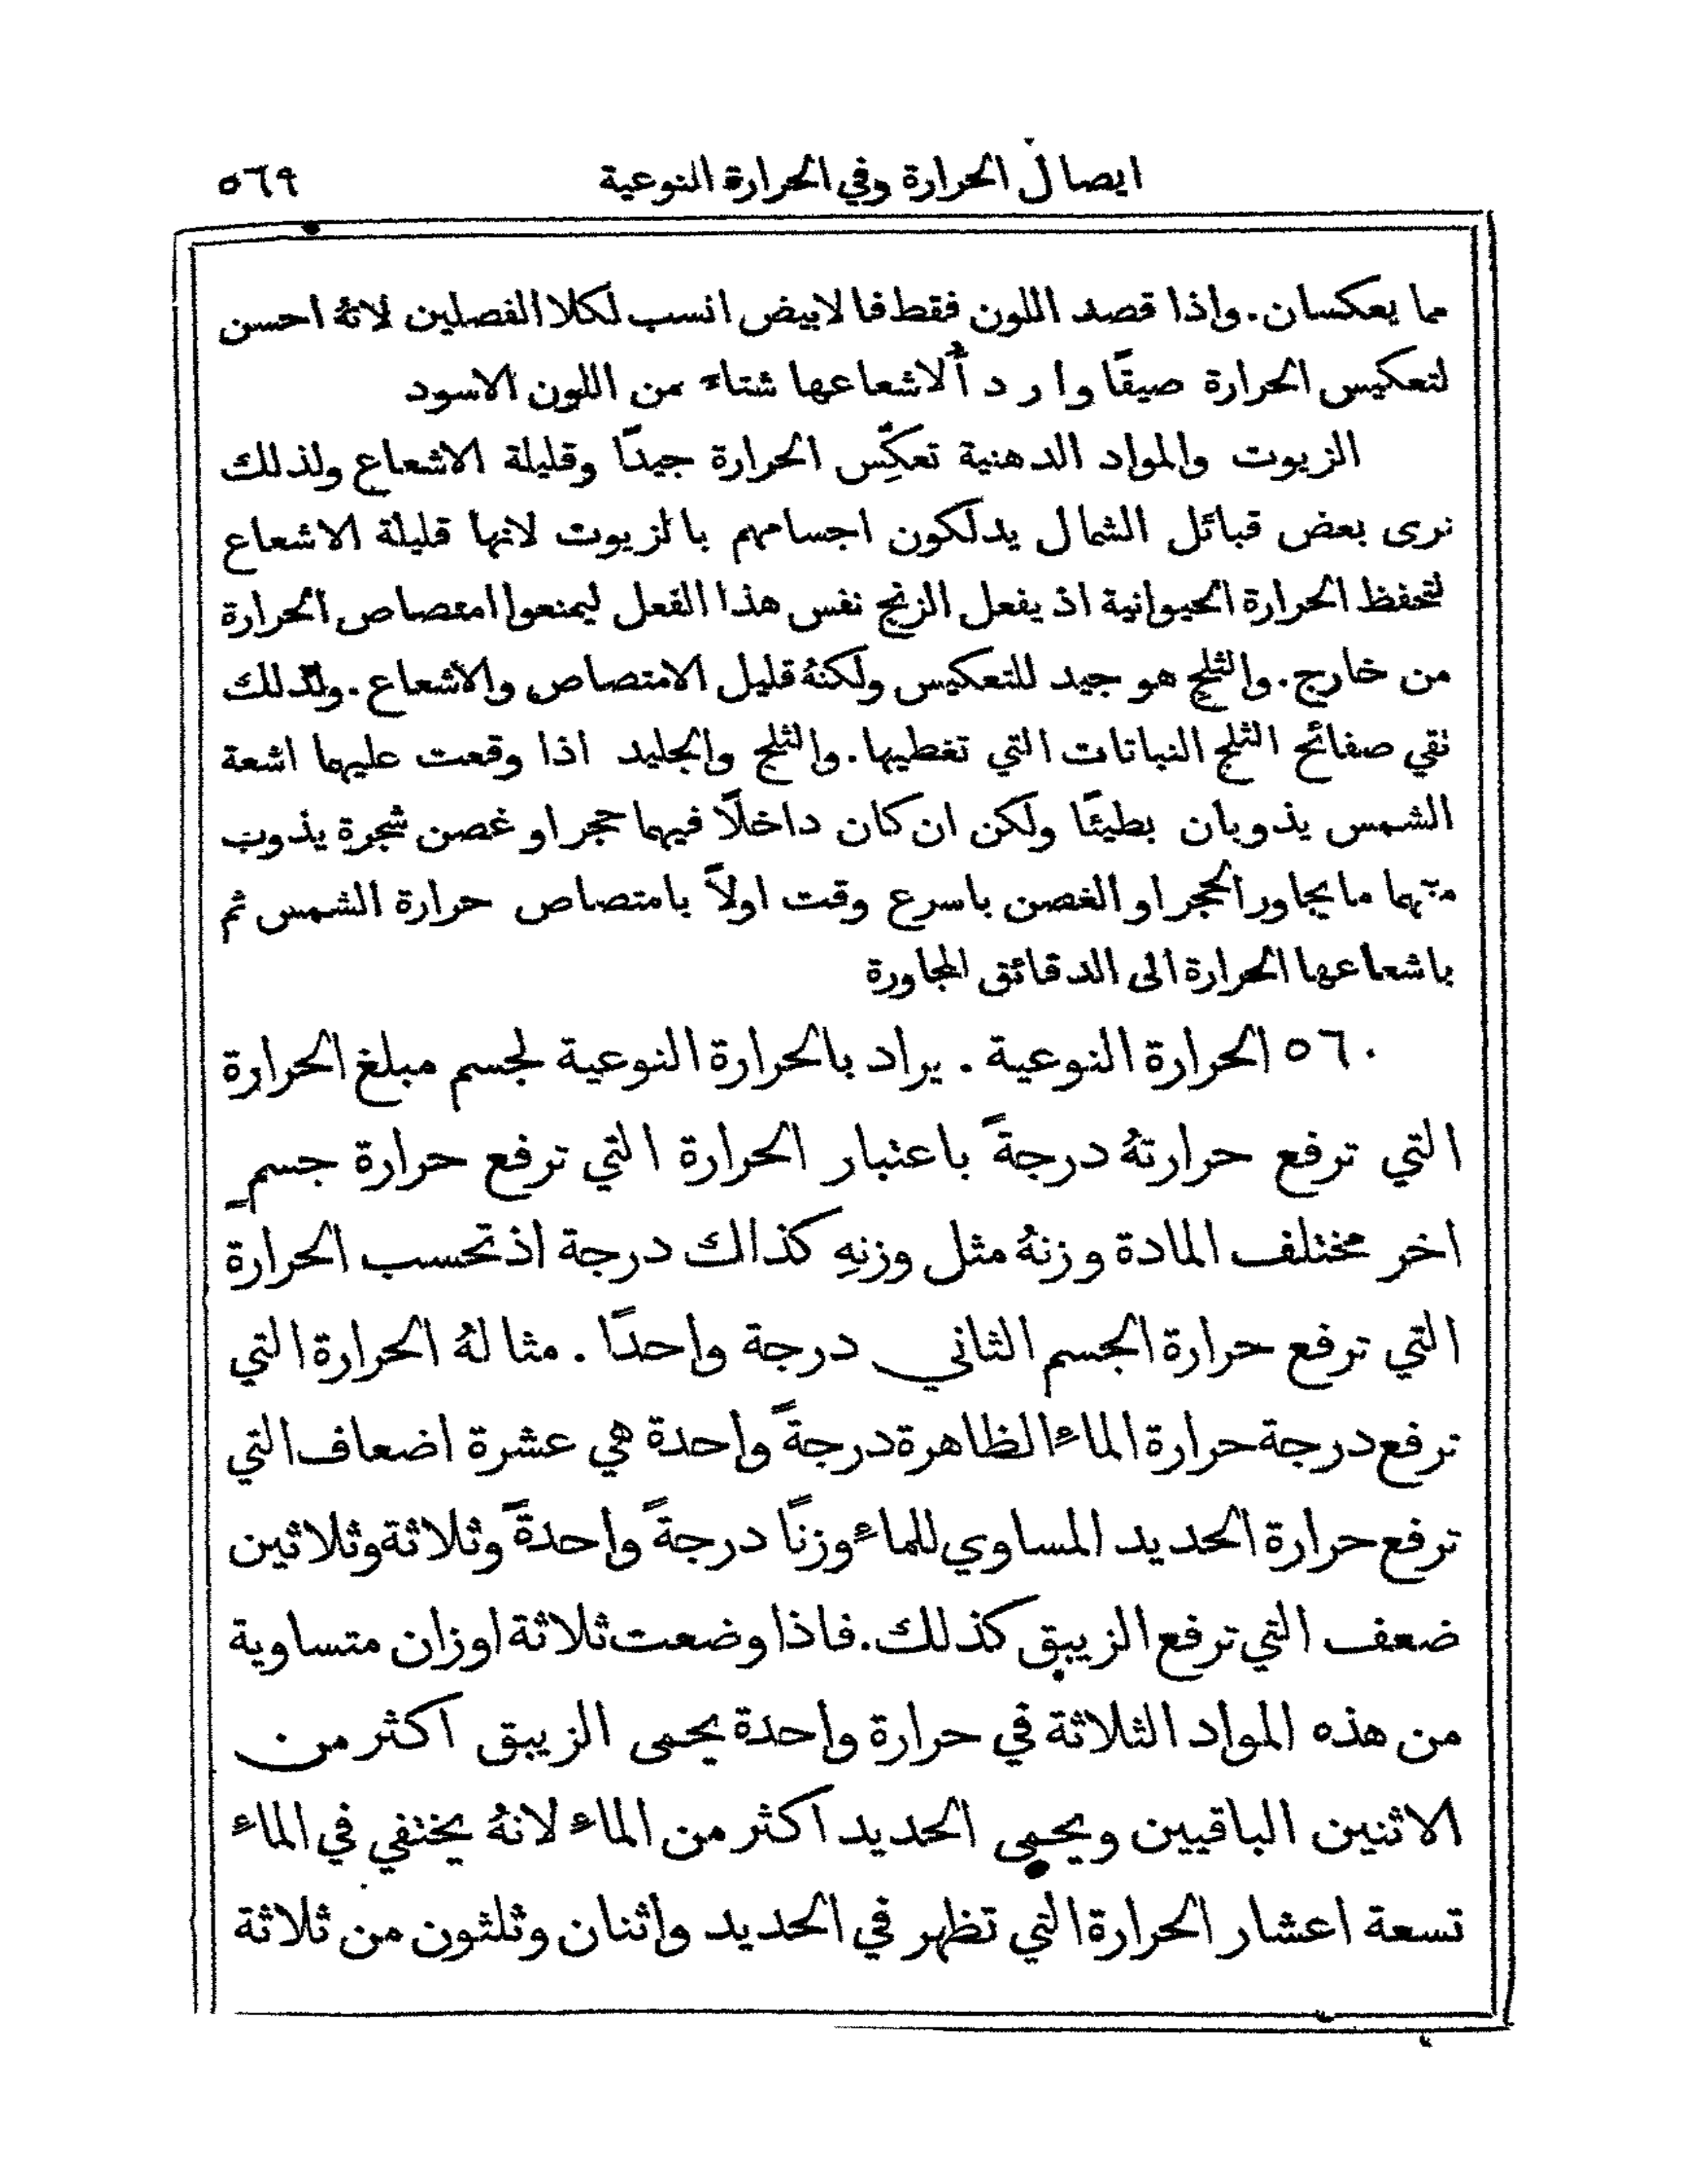 ايصال الحرارة وفي الحرارة النوعية ٥٦٩
مما يعكسان. واذا قصد اللون فقط فالابيض انسب لكلا الفصلين لانهُ احسن
لتعكيس الحرارة صيفًا واردأُ لاشعاعها شتاءً من اللون الاسود
الزيوت والمواد الدهنية تعكِّس الحرارة جيدًا وقليلة الاشعاع ولذلك
نرى بعض قبائل الشمال يدلكون اجسامهم بالزيوت لانها قليلة الاشعاع
لتحفظ الحرارة الحيوانية اذ يفعل الزنج نفس هذا الفعل ليمنعوا امتصاص الحرارة
من خارج. والثلج هو جيد للتعكيس ولكنهُ قليل الامتصاص والاشعاع. ولذلك
تقي صفائح الثلج النباتات التي تغطيها. والثلج والجليد اذا وقعت عليهما اشعة
الشمس يذوبان بطيئًا ولكن ان كان داخلًا فيهما حجر او غصن شجرة يذوب
منهما ما يجاور الحجر او الغصن باسرع وقت اولاً بامتصاص حرارة الشمس ثم
باشعاعها الحرارة الى الدقائق المجاورة
٥٦٠ الحرارة النوعية. يراد بالحرارة النوعية لجسم مبلغ الحرارة
التي ترفع حرارتهُ درجةً باعتبار الحرارة التي ترفع حرارة جسمٍ
اخر مختلف المادة وزنهُ مثل وزنهِ كذالك درجة اذ تحسب الحرارة
التي ترفع حرارة الجسم الثاني درجة واحدًا. مثالهُ الحرارة التي
ترفع درجة حرارة الماء الظاهرة درجةً واحدة هي عشرة اضعاف التي
ترفع حرارة الحديد المساوي للماء وزنًا درجةً واحدةً وثلاثة وثلاثين
ضعف التي ترفع الزيبق كذلك. فاذا وضعت ثلاثة اوزان متساوية
من هذه المواد الثلاثة في حرارة واحدة يحمى الزيبق اكثر من
الاثنين الباقيين ويحمى الحديد اكثر من الماء لانهُ يختفي في الماء
تسعة اعشار الحرارة التي تظهر في الحديد واثنان وثلثون من ثلاثة